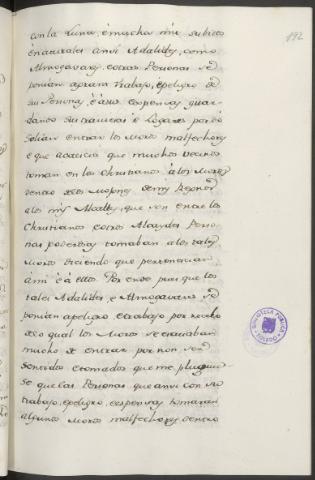 192
con la Luna, é mucho mis subitos
é naturales ansi Adalides, como
Almogavares, é otras Personas se
ponian a gran trabajo, é peligro de
sus Personas, é á sus espensas guar
dando sus traviesas é Lugares por do
solian entrar los Moros malfechores
é que acaecia que muchos vecinos
toman en los Christianos á los Moros
dentro de los Mojones de mis Reynos
a los mis Alcaldes, que son entre los
Christianos é otros Alcaydes Perso
nas poderosas tomaban a los tales
Moros diciendo que pertenecian
á mi é á ellos. Por ende pues que los
tales Adalides, é Almogavares se
ponian a peligro, é trabajo por recelo
de lo qual los Moros se escusaban
mucho de entrar por non ser
sentidos é tomados que me pluguie
se que las Personas que ansi con su
trabajo, é peligro, é espensas tomaran
algunos Moros malfechores dentro
BIBLIOTECA